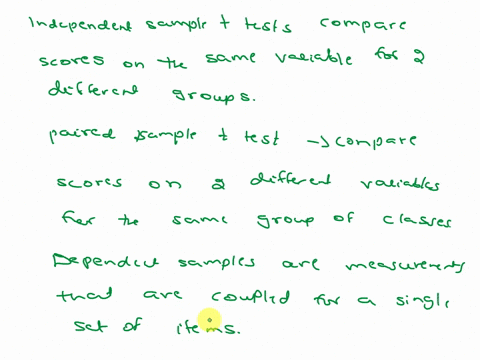 Independent sample t tests compare
scores on the same variable for 2
different groups.
paired sample t test → compare
scores on 2 different variables
for the same group of classes
Dependent samples are measurements
that are coupled for a single
set of items.